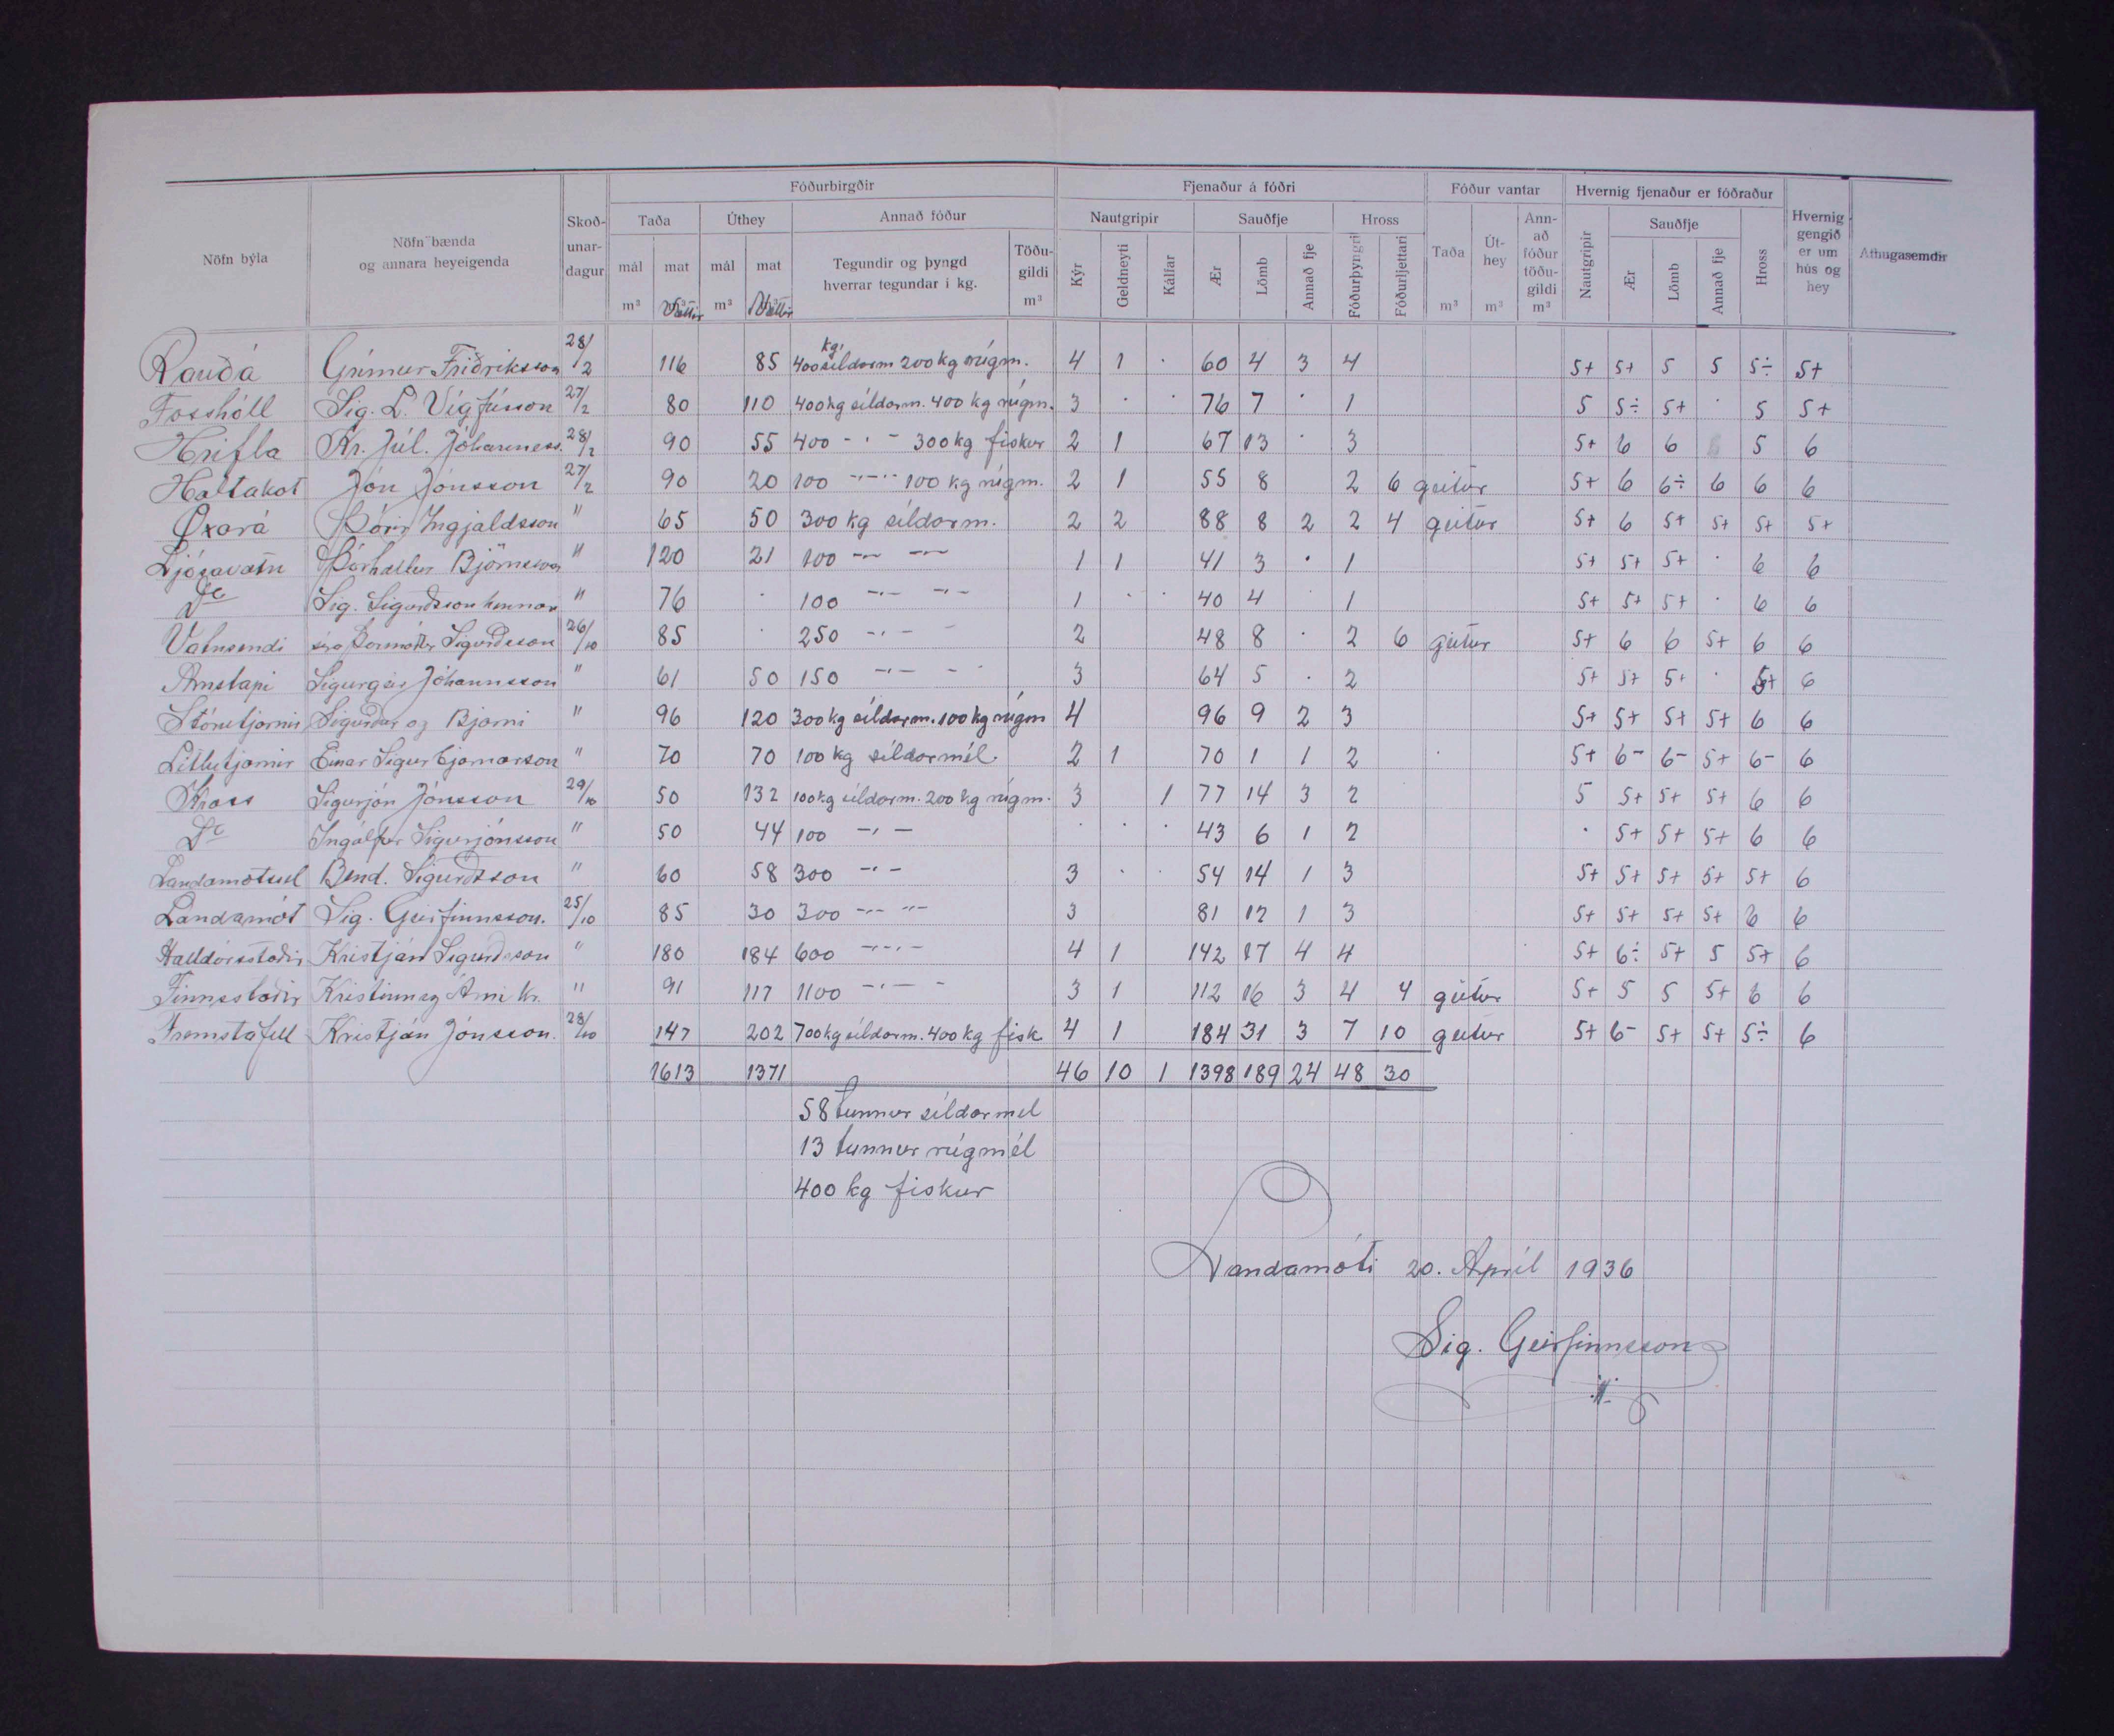 Fóðurbirgðir Fjenaður á fóðri Fóður vantar Hvernig fjenaður er fóðraður
Nöfn býla Nöfn bænda og annara heyeigenda Skoðunardagur Taða Úthey Annað fóður Nautgripir Sauðfje Hross Taða Úthey Annað fóður töðugildi Nautgripir Sauðfje Hross Hvernig gengið er um hús og hey Athugasemdir
mál mat mál mat Tegundir og þyngd hverrar tegundar í kg. Töðugildi Kýr Geldneyti Kálfar Ær Lömb Annað fje Fóðurþyngri Fóðurljettari Ær Lömb Annað fje
m³ m³ m³ m³ m³ m³
Rauðá Grímur Friðriksson 28/2 116 85 400 kg. síldarm 200 kg rúgm. 4 1 · 60 4 3 4 5+ 5+ 5 5 5÷ 5+
Fosshóll Sig. L. Vigfússon 27/2 80 110 400 kg síldarm. 400 kg rúgm. 3 · · 76 7 · 1 5 5÷ 5+ · 5 5+
Hrifla Kr. Júl. Jóhanness. 28/2 90 55 400 - " - 300 kg fiskur 2 1 67 13 · 3 5+ 6 6 5 6
Holtakot Jón Jónsson 27/2 90 20 100 -"-" 100 kg rúgm. 2 1 55 8 2 6 geitur 5+ 6 6÷ 6 6 6
Öxará Þórir Ingjaldsson " 65 50 300 kg síldarm. 2 2 88 8 2 2 4 geitur 5+ 6 5+ 5+ 5+ 5+
Ljósavatn Þórhallur Björnsson " 120 21 100 -"- -"- 1 1 41 3 · 1 5+ 5+ 5+ · 6 6
Do Sig. Sigurðsson " 76 · 100 -"- -"- 1 · · 40 4 · 1 5+ 5+ 5+ · 6 6
Vatnsendi séra Þormóður Sigurðsson 26/10 85 · 250 -"- - 2 48 8 · 2 6 geitur 5+ 6 6 5+ 6 6
Arnstapi Sigurgeir Jóhannsson " 61 50 150 -"- - 3 64 5 · 2 5+ 5+ 5+ · 5+ 6
Stórutjarnir Sigurður og Bjarni " 96 120 300 kg síldarm. 100 kg rúgm 4 96 9 2 3 5+ 5+ 5+ 5+ 6 6
Litlutjarnir Einar Sigurbjarnarson " 70 70 100 kg síldarmél. 2 1 70 1 1 2 5+ 6- 6- 5+ 6- 6
Kross Sigurjón Jónsson 29/10 50 132 100 kg síldarm. 200 kg rúgm. 3 1 77 14 3 2 5 5+ 5+ 5+ 6 6
Do Ingólfur Sigurjónsson " 50 44 100 -"- · · · 43 6 1 2 · 5+ 5+ 5+ 6 6
Landamótssel Bend. Sigurðsson " 60 58 300 -"- 3 · · 54 14 1 3 5+ 5+ 5+ 5+ 5+ 6
Landamót Sig. Geirfinnsson. 25/10 85 30 300 -"- -"- 3 81 12 1 3 5+ 5+ 5+ 5+ 6 6
Halldórsstaðir Kristján Sigurðsson " 180 184 600 -"-"- 4 1 142 17 4 4 5+ 6÷ 5+ 5 5+ 6
Finnsstaðir Kristinn og Árni Kr. " 91 117 1100 -"- - 3 1 112 16 3 4 4 geitur 5+ 5 5 5+ 6 6
Fremstafell Kristján Jónsson. 28/10 147 202 700 kg síldarm. 400 kg fisk 4 1 184 31 3 7 10 geitur 5+ 6- 5+ 5+ 5÷ 6
1613 1371 46 10 1 1398 189 24 48 30
58 tunnur síldarmel
13 tunnur rúgmél
400 kg fiskur
Landamóti 20. Apríl 1936
Sig. Geirfinnsson